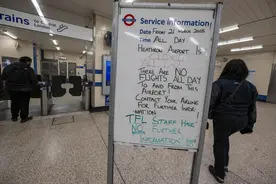 Trains
Service information
Date From 21 March 2025
Time All Day
Heathrow Airport is
There are NO
Flights All Day
To And From This
Airport!
Contact Your Airline
For Further Infor-
mation!
TFL Staff Have
No Further
Information!!!